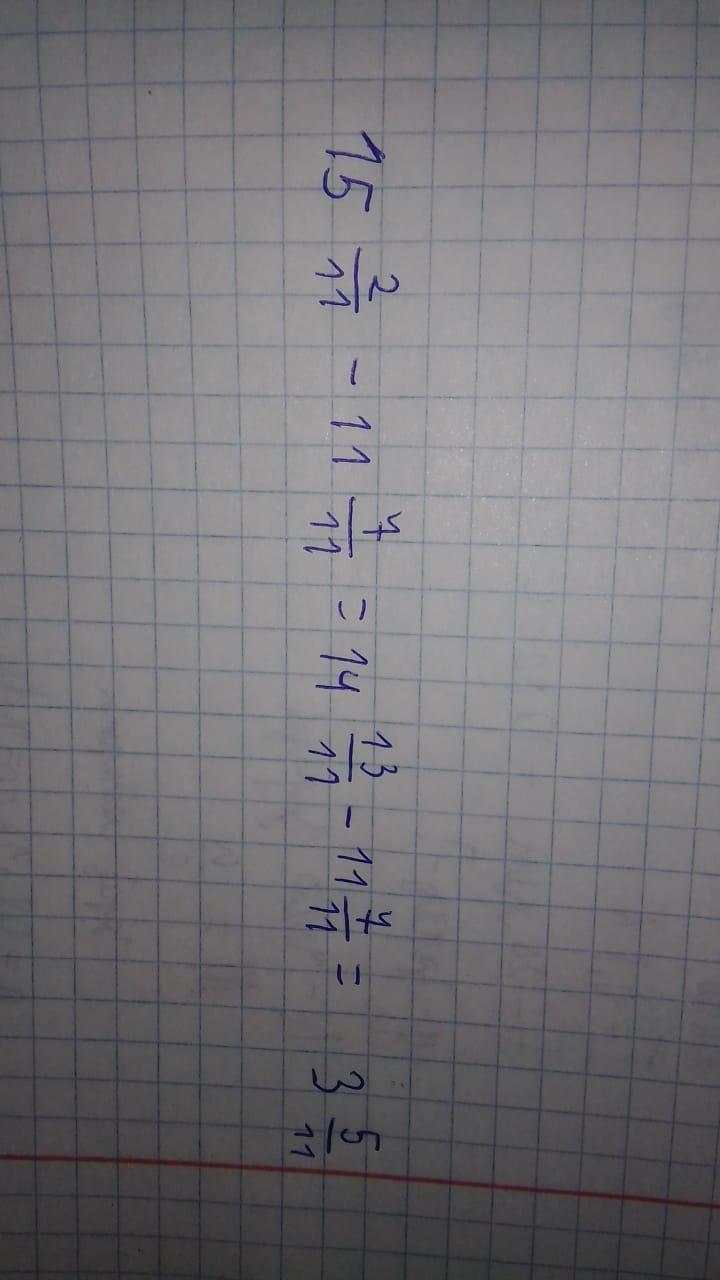 15 2/11 - 11 7/11 = 14 13/11 - 11 7/11 = 3 5/11